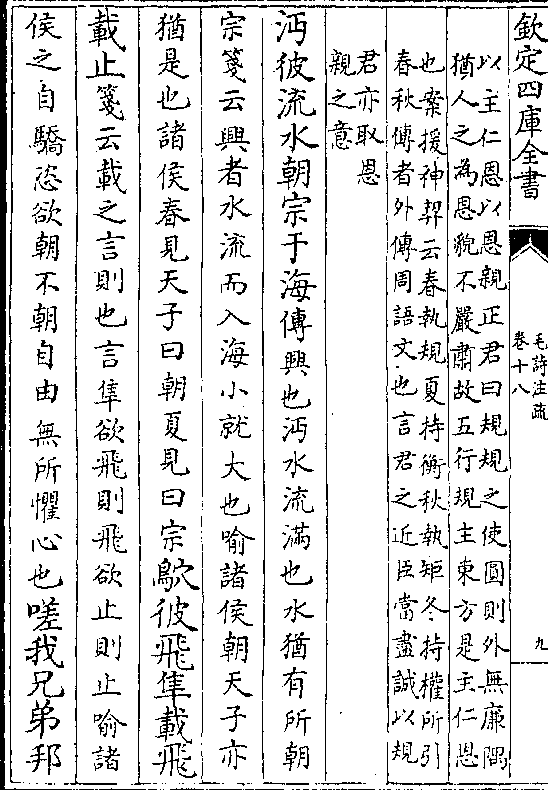 欽定四庫全書
毛詩注疏
卷十八
九
以主仁恩以恩親正君曰規規之使圓則外無廉隅
猶人之為恩貌不嚴肅故五行規主東方是主仁恩
也案援神契云春執規夏持衡秋執矩冬持權所引
春秋傳者外傳周語文也言君之近臣當盡誠以規
君亦取恩
親之意
沔彼流水朝宗于海傳興也沔水流滿也水猶有所朝
宗箋云興者水流而入海小就大也喻諸侯朝天子亦
猶是也諸侯春見天子曰朝夏見曰宗鴥彼飛隼載飛
載止箋云載之言則也言隼欲飛則飛欲止則止喻諸
侯之自驕恣欲朝不朝自由無所懼心也嗟我兄弟邦